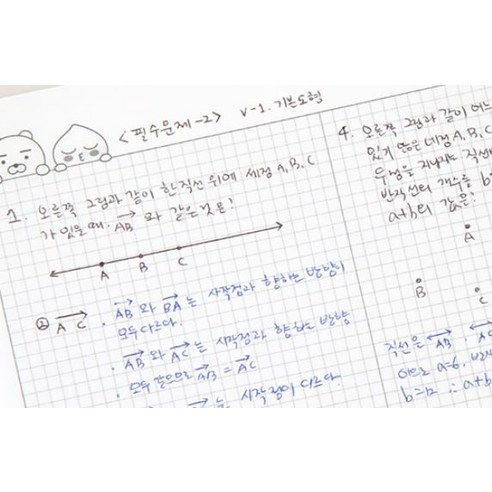 <필수문제-2> V-1. 기본도형
1. 오른쪽 그림과 같이 한 직선 위에 세 점 A, B, C
가 있을 때, AB 와 같은 것은?
A B C
② AC
· AB 와 BA 는 시작점과 향하는 방향이
모두 다르다.
· AB 와 AC 는 시작점과 향하는 방향
모두 같으므로 AB = AC
는 시작점이 다르다.
4. 오른쪽 그림과 같이 어느
있지 않은 네 점 A, B, C,
두 점을 지나는 직선
반직선의 개수를 b
a+b의 값은?
A
B C
직선은 AB, AC
이므로 a=6, 반직
b=12 ∴ a+b